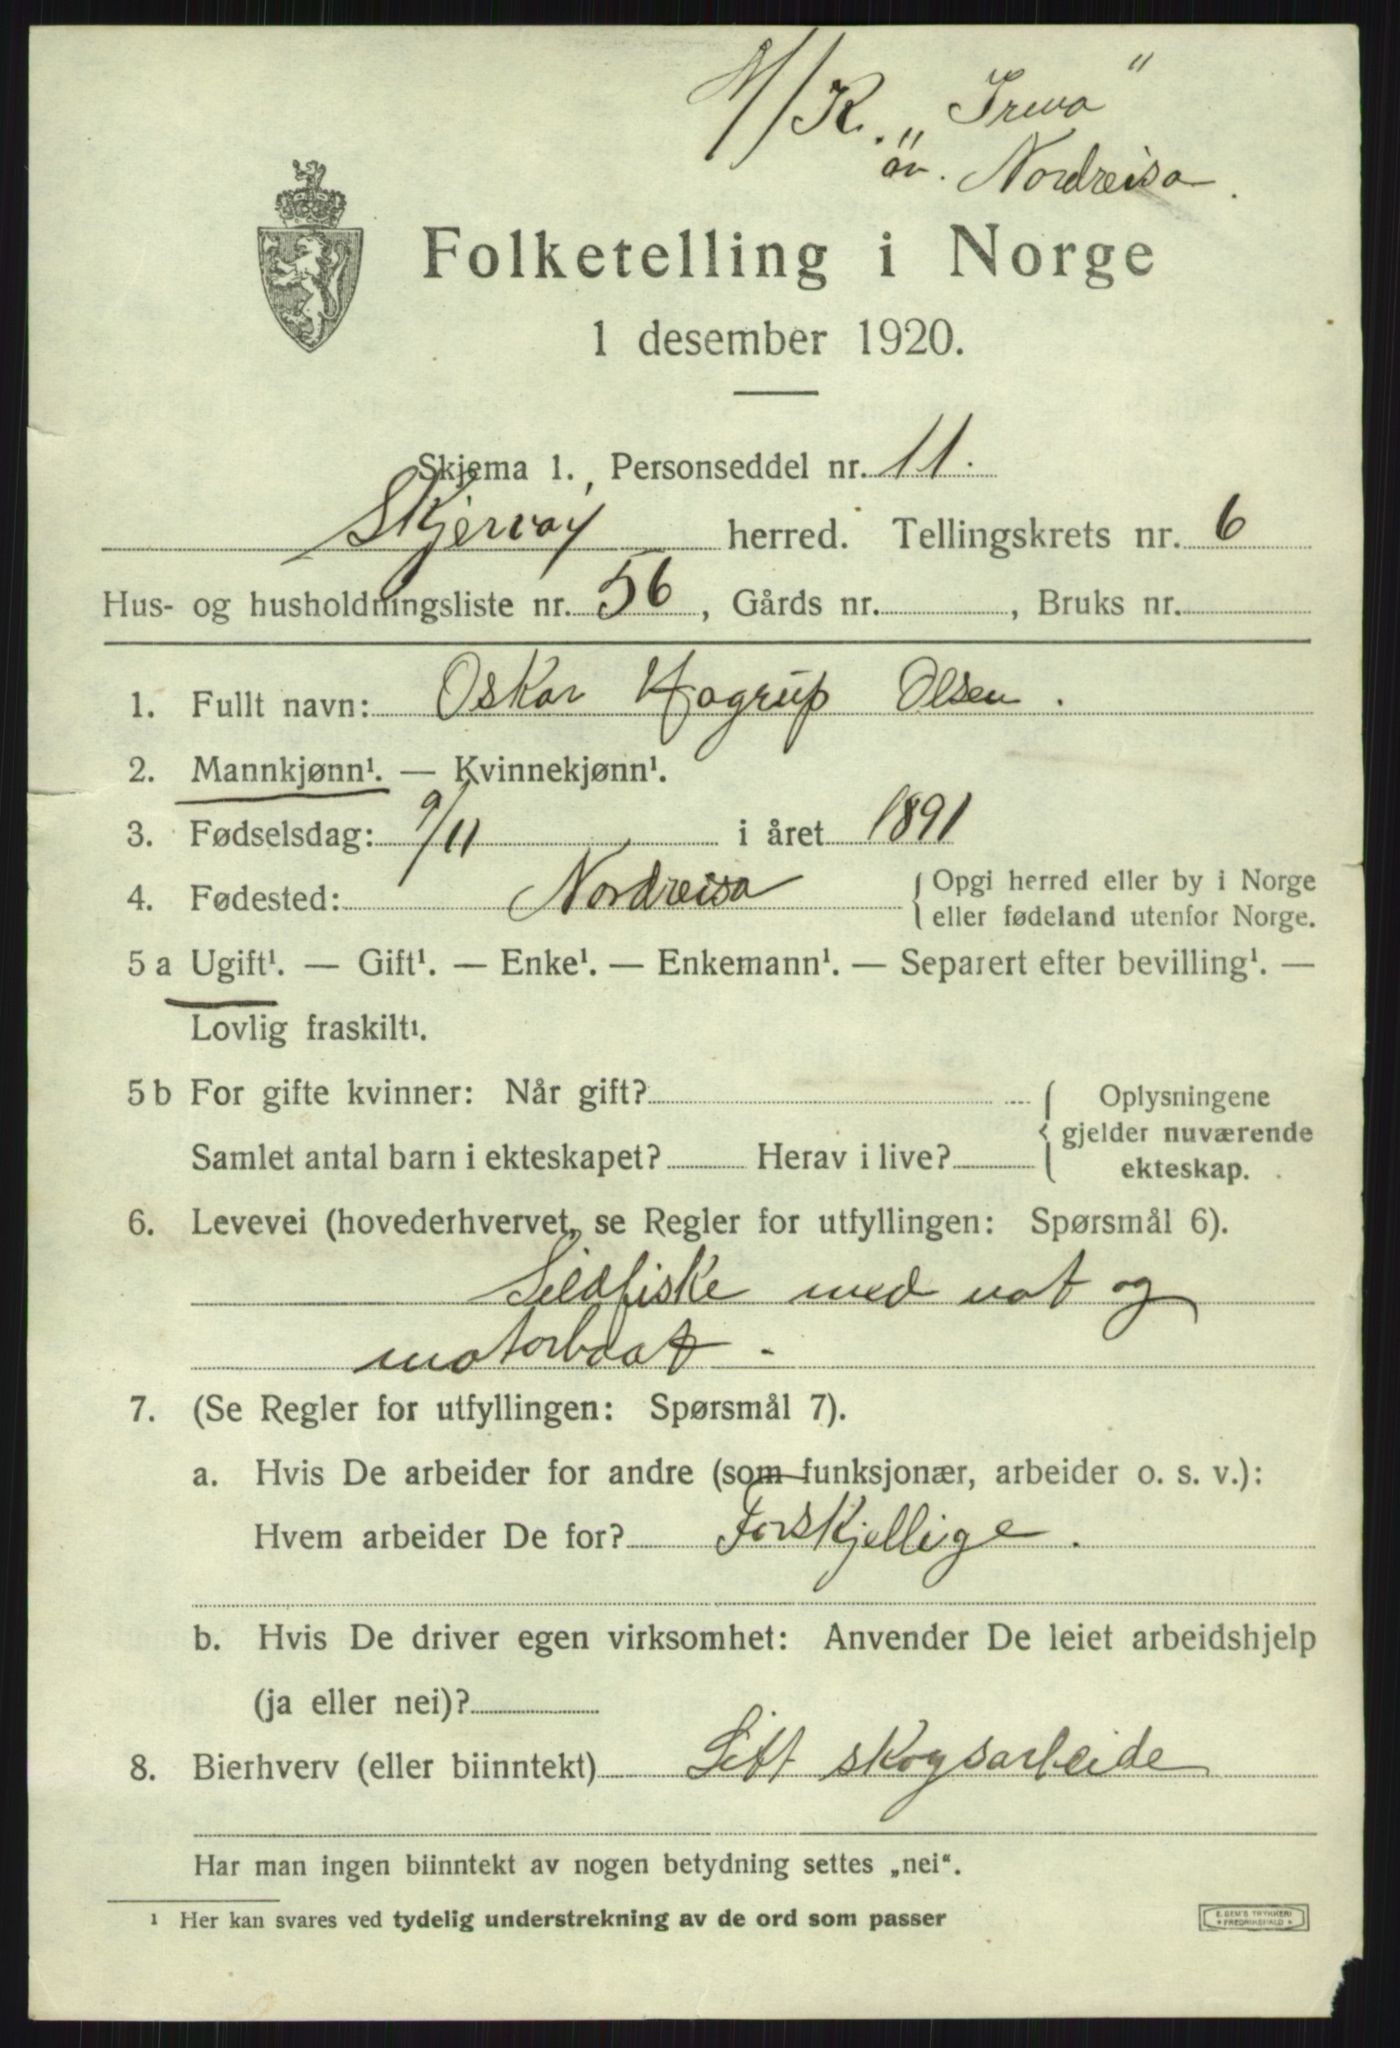 M/K. „Irma"
av. Nordreisa.
Folketelling i Norge
1 desember 1920.
Skjema 1. Personseddel nr. 11.
Skjervøy herred. Tellingskrets nr. 6
Hus- og husholdningsliste nr. 56, Gårds nr. , Bruks nr.
1. Fullt navn: Oskar Hagrup Olsen.
2. Mannkjønn¹. — Kvinnekjønn¹.
3. Fødselsdag: 9/11 i året 1891
4. Fødested: Nordreisa { Opgi herred eller by i Norge
eller fødeland utenfor Norge.
5 a Ugift¹. — Gift¹. — Enke¹. — Enkemann¹. — Separert efter bevilling¹. —
Lovlig fraskilt¹.
5 b For gifte kvinner: Når gift? { Oplysningene
gjelder nuværende
Samlet antal barn i ekteskapet? Herav i live? ekteskap.
6. Levevei (hovederhvervet, se Regler for utfyllingen: Spørsmål 6).
Sildfiske med not og
motorbaat -
7. (Se Regler for utfyllingen: Spørsmål 7).
a. Hvis De arbeider for andre (som funksjonær, arbeider o. s. v.):
Hvem arbeider De for? Forskjellige.
b. Hvis De driver egen virksomhet: Anvender De leiet arbeidshjelp
(ja eller nei)?
8. Bierhverv (eller biinntekt) Litt skogsarbeide
Har man ingen biinntekt av nogen betydning settes „nei".
¹ Her kan svares ved tydelig understrekning av de ord som passer
E. SEM'S TRYKKERI
FREDRIKSHALD